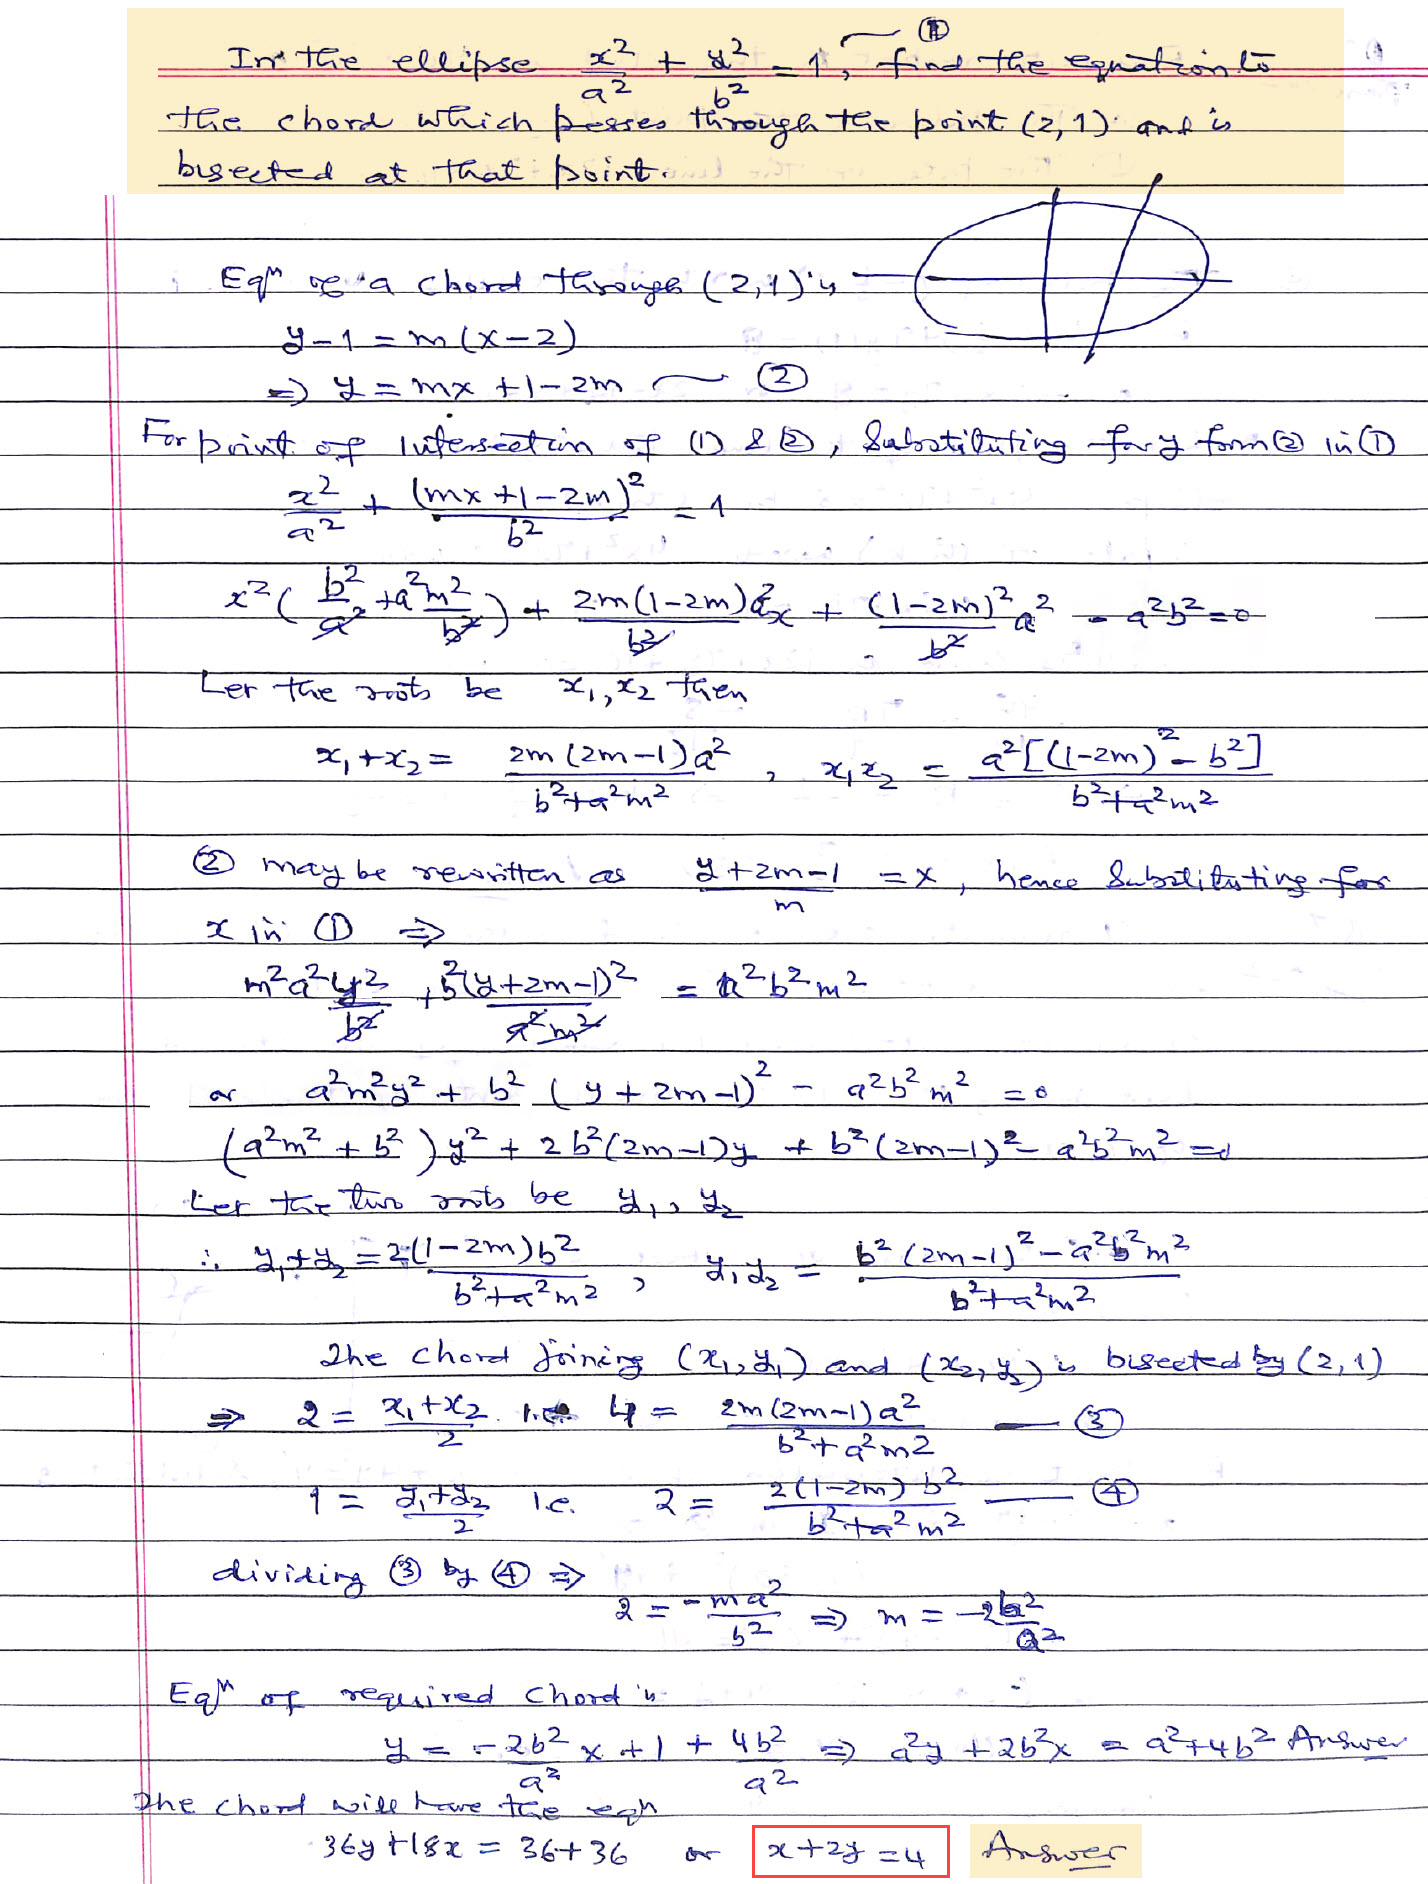 In the ellipse x²/a² + y²/b² = 1, ①
find the equation to
the chord which passes through the point (2,1) and is
bisected at that point.
Eqⁿ of a chord through (2,1) is
y-1 = m(x-2)
=> y = mx +1-2m ②
For point of intersection of (1) & ②, Substituting for y form ② in ①
x²/a² + (mx+1-2m)²/b² = 1
x²(b²/a² + a²m²/b²) + 2m(1-2m)a²x/b² + (1-2m)²/b² a² - a²b² = 0
Let the roots be x₁, x₂ then
x₁+x₂ = 2m(2m-1)a²/(b²+a²m²), x₁x₂ = a²[(1-2m)² - b²]/(b²+a²m²)
② may be rewritten as (y+2m-1)/m = x, hence Substituting for
x in ① =>
m²a²y²/b² + b²(y+2m-1)²/a²m² = a²b²m²
or a²m²y² + b²(y+2m-1)² - a²b²m² = 0
(a²m² + b²)y² + 2b²(2m-1)y + b²(2m-1)² - a²b²m² = 0
Let the two roots be y₁, y₂
∴ y₁+y₂ = 2(1-2m)b²/(b²+a²m²), y₁y₂ = (b²(2m-1)² - a²b²m²)/(b²+a²m²)
The chord joining (x₁,y₁) and (x₂,y₂) is bisected by (2,1)
=> 2 = (x₁+x₂)/2 i.e. 4 = 2m(2m-1)a²/(b²+a²m²) — ③
1 = (y₁+y₂)/2 i.e. 2 = 2(1-2m)b²/(b²+a²m²) — ④
dividing ③ by ④ =>
2 = -ma²/b² => m = -2b²/a²
Eqⁿ of required chord is
y = -2b²/a² x + 1 + 4b²/a² => a²y + 2b²x = a²+4b² Answer
The chord will have the eqn
36y+18x = 36+36 or x+2y=4 Answer